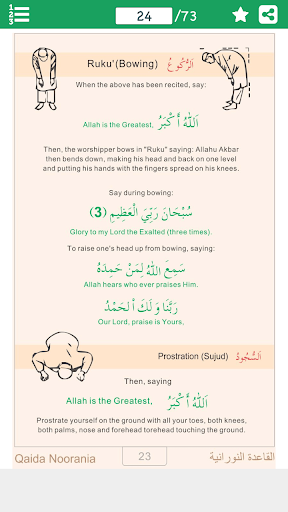 1 2 3
24 /73
Ruku'(Bowing) اَلرُّكُوعُ
When the above has been recited, say:
Allah is the Greatest, اَللّٰهُ أَكْبَرُ
Then, the worshipper bows in "Ruku" saying: Allahu Akbar
then bends down, making his head and back on one level
and putting his hands with the fingers spread on his knees.
Say during bowing:
سُبْحَانَ رَبِّيَ الْعَظِيمِ (3)
Glory to my Lord the Exalted (three times).
To raise one's head up from bowing, saying:
سَمِعَ اللّٰهُ لِمَنْ حَمِدَهُ
Allah hears who ever praises Him.
رَبَّنَا وَ لَكَ الْحَمْدُ
Our Lord, praise is Yours,
Prostration (Sujud) اَلسُّجُودُ
Then, saying
Allah is the Greatest, اَللّٰهُ أَكْبَرُ
Prostrate yourself on the ground with all your toes, both knees,
both palms, nose and forehead touching the ground.
Qaida Noorania 23 القاعدة النورانية